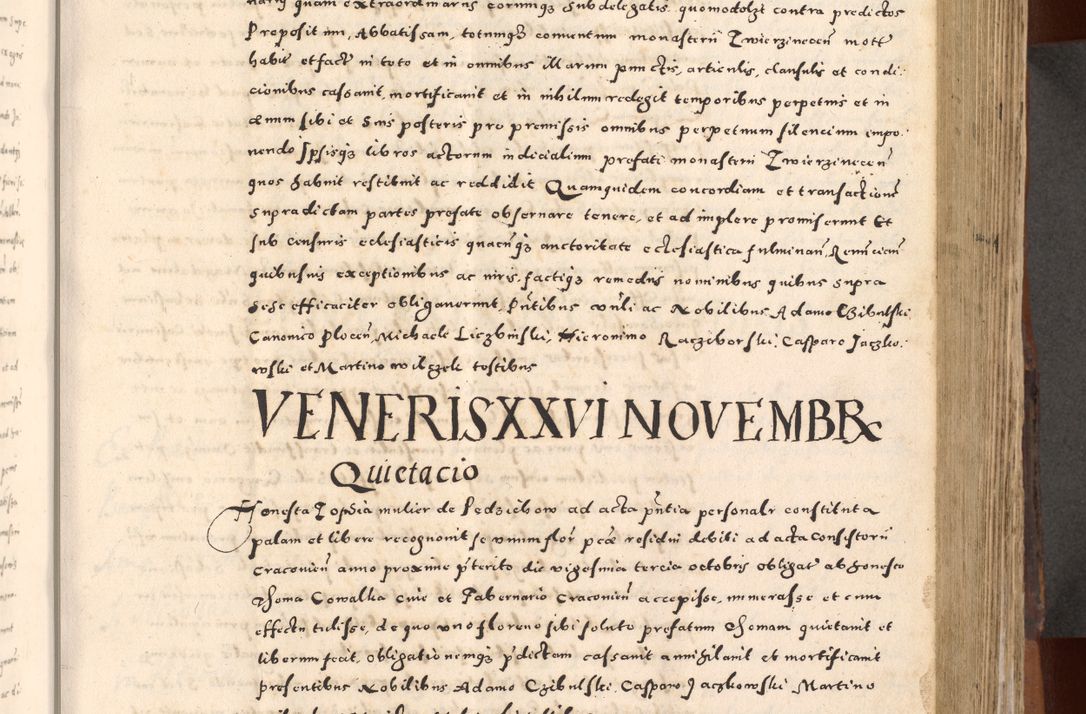 nariis quam extraordinariis eorumq3 subdelegatis quomodolzt contra predictos
Prepositum, Abbatissam, totumq3 conuentum monasterii Zwierzinecen̄ mott
habit et fact in toto et in omnibus illarum punctis, articulis, clausulis et condi:
cionibus cassauit, mortificauit et in nihilum redegit temporibus perpetuis et in
æuum sibi et suis posteris pro premissis omnibus perpetuum silencium impo:
nendo Ipsisq3 libros actorum iudicialium prefati monasterii Zwierzinecen̄
quos habuit restituit ac reddidit Quamquidem concordiam et transactionē
supradictam partes prefate obseruare tenere, et ad implere promiserunt Et
sub censuris eclesiasticis quacūq3 auctoritate eclesiastica fulminan̄, Renūcian̄
quibusuis exceptionibus ac iuris, factiq3 remediis nominibus quibus supra
sese efficaciter obligauerunt, Pn̄tibus vn̄li ac Nobilibus Adamo Czibulski
Canonico Plocen̄, Michaele Liczbinski, Hieronimo Racziborski, Casparo Jaczko:
wski et Martino wilczek testibus
VENERIS XXVI NOVEMBR
Quietacio
Honesta Zophia mulier de Pedzichow ad acta pn̄tia personalr constituta
palam et libere recognouit se vnum flor pcæ residui debiti ad acta Consistorii
Cracouien̄ anno proxime pr̄terito die vigesima tercia octobris obligat ab honesto
Thoma Cowalka ciue et Tabernario Cracouien̄ accepisse, numerasse et cum
effectu tulisse, de quo vno floreno sibi soluto prefatum Thomam quietauit et
liberum fecit, obligationemq3 pr̄dictam cassauit annihilauit et mortificauit
presentibus Nobilibus Adamo Czibulski, Casparo Jaczkowski, Martino